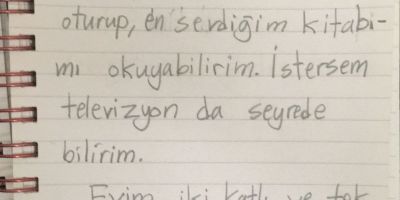 oturup, en sevdiğim kitabı-
mı okuyabilirim. İstersem
televizyon da seyrede
bilirim.
Evim iki katlı ve